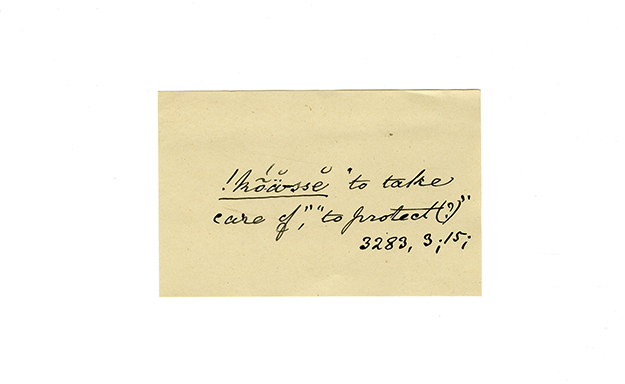 !kõä́ssĕ̆ "to take
care of," "to protect(?)"
3283, 3; 15;